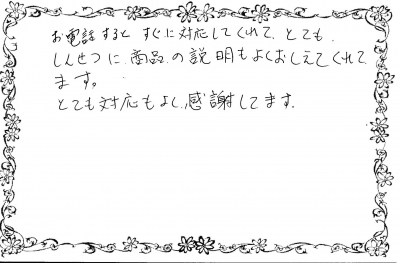 お電話すると すぐに対応してくれて、とても、
しんせつに、商品の説明もよくおしえてくれて
ます。
とても対応もよし、感謝してます。